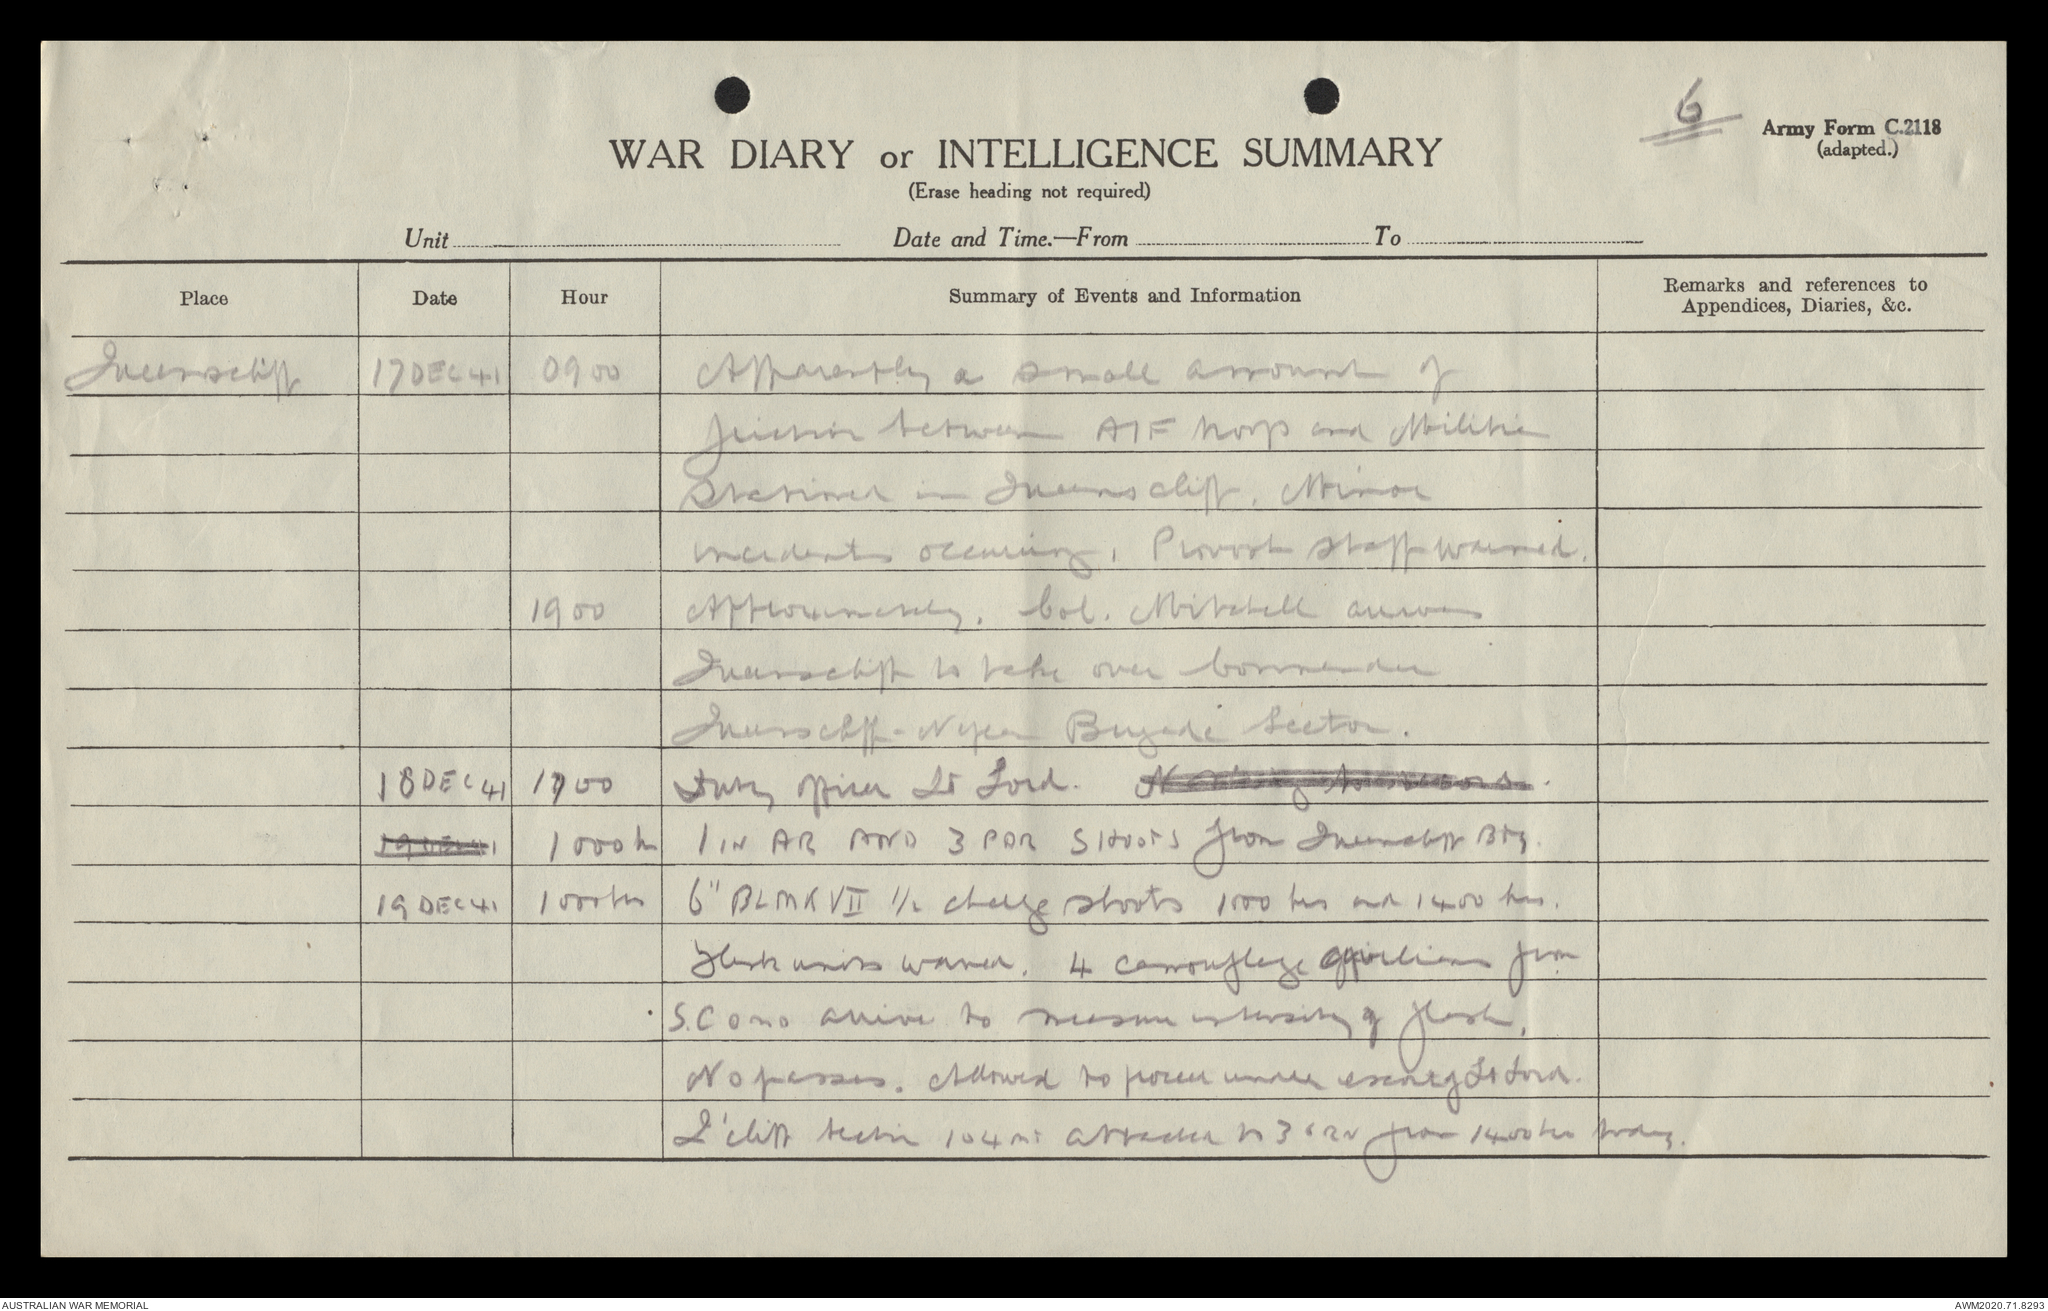 6
Army Form C.2118
(adapted.)
WAR DIARY or INTELLIGENCE SUMMARY
(Erase heading not required)
Unit Date and Time.—From To
Place Date Hour Summary of Events and Information Remarks and references to Appendices, Diaries, &c.
Queenscliff 17 DEC 41 0900 Apparently a small amount of
friction between AIF troops and Militia
stationed in Queenscliff. Minor
incidents occuring. Provost staff warned.
1900 Approximately. Col. Mitchell arrives
Queenscliff to take over Commander
Queenscliff-Nepean Brigade Sector.
18 DEC 41 1700 Duty officer Lt Ford.
19 DEC 41 1000 hrs 1 IN AR AND 3 PDR SHOOTS from Queenscliff Bty.
19 DEC 41 1000 hrs 6" BL MK VII 1/2 charge shoots 1000 hrs and 1400 hrs.
units warned. 4 camouflage civilians from
S. Comd arrive to measure intensity of flash.
No passes. Allowed to proceed under escort Lt Ford.
Q'cliff Section attached to from 1400 hrs today.
AUSTRALIAN WAR MEMORIAL
AWM2020.71.8293